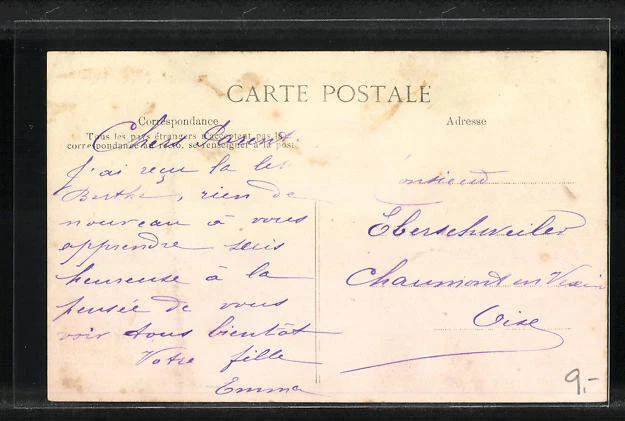 CARTE POSTALE
Correspondance
Tous les pays étrangers n'acceptent pas la
correspondance au recto, se renseigner à la post
Chers Parents
j'ai reçu la let
Berthe, rien de
nouveau à vous
apprendre suis
heureuse à la
pensée de vous
voir tous bientôt
Votre fille
Emma
Adresse
onsieur
Eberschweiler
Chaumont en Vexin
Oise
9.-